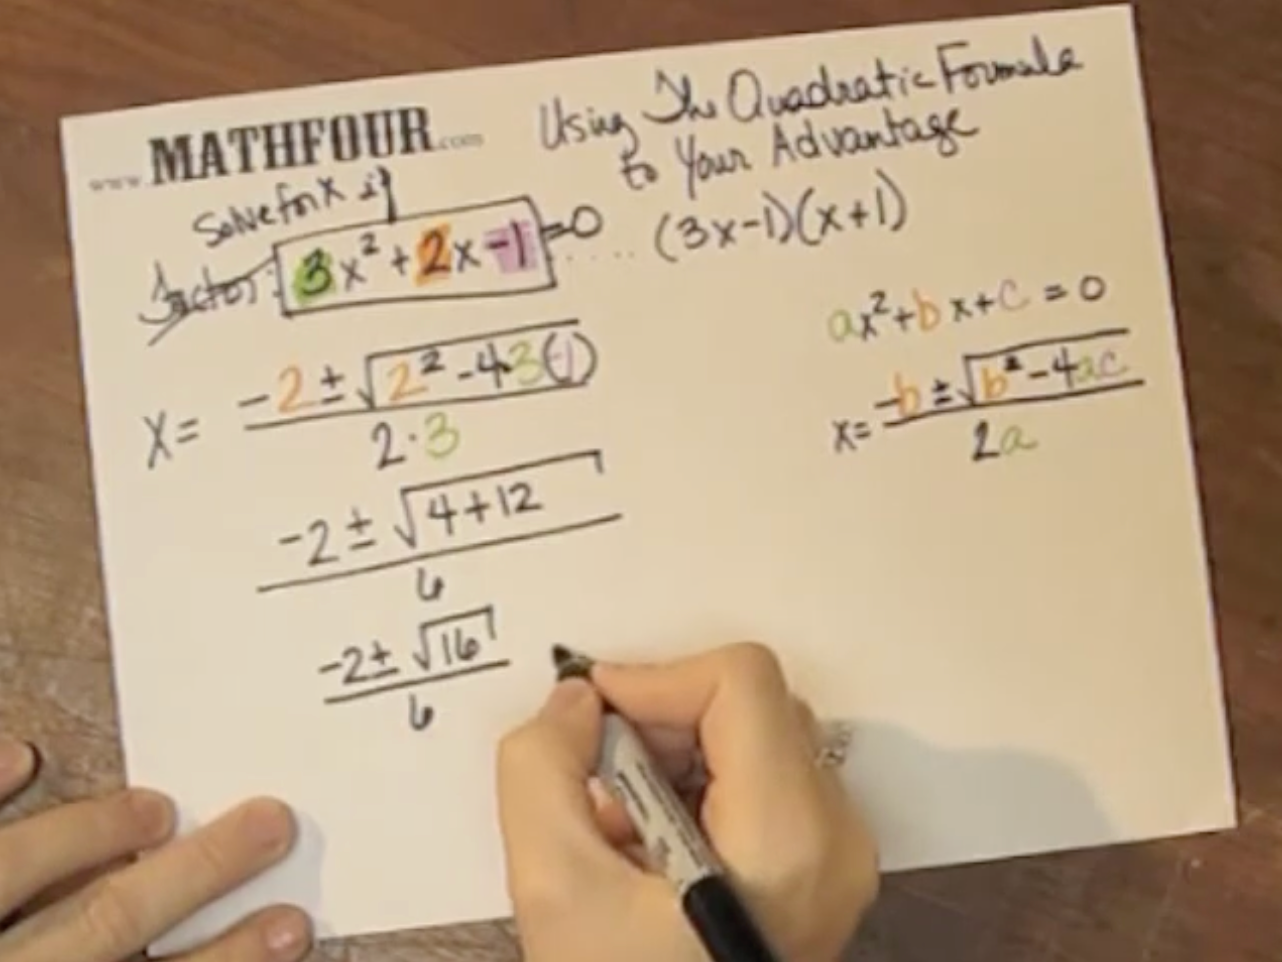 www.MATHFOUR.com
Using The Quadratic Formula
to Your Advantage
Solve for x if
Factor: 3x² + 2x -1 =0 ..... (3x-1)(x+1)
ax²+bx+c = 0
x= -2 ± √(2² -4·3(-1)) / 2·3
x= -b ± √(b² -4ac) / 2a
-2 ± √(4+12) / 6
-2 ± √16 / 6